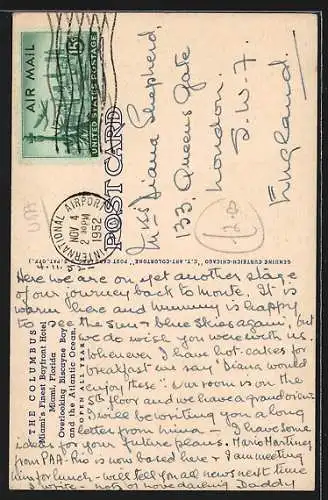 AIR MAIL
15¢
UNITED STATES POSTAGE
INTERNATIONAL AIRPORT
NOV 4
2 PM
1952
POST CARD
Miss Diana Shepherd,
33, Queens Gate
London.
S.W.7.
England.
USA
12.-
GENUINE CURTEICH-CHICAGO "C.T. ART-COLORTONE" POST CARD
THE COLUMBUS
"Miami's Finest Bayfront Hotel"
Miami, Florida
Overlooking Biscayne Bay
and the Atlantic Ocean
OPEN ALL YEAR
4.11.
Here we are on yet another stage
of our journey back to Monte. It is
warm here and mummy is happy
to the sun & blue skies again, but
we do wish you were with us.
Whenever I have hot-cakes for
breakfast we say "Diana would
enjoy these". Our room is on the
5th floor and we have a grand view.
I will be writing you a long
letter from – I have some
ideas for your future plans. Mario Martinez
from PAA-Rio is now based here & I am meeting
him for lunch – will tell you all news next time
I write – lots of love darling Daddy